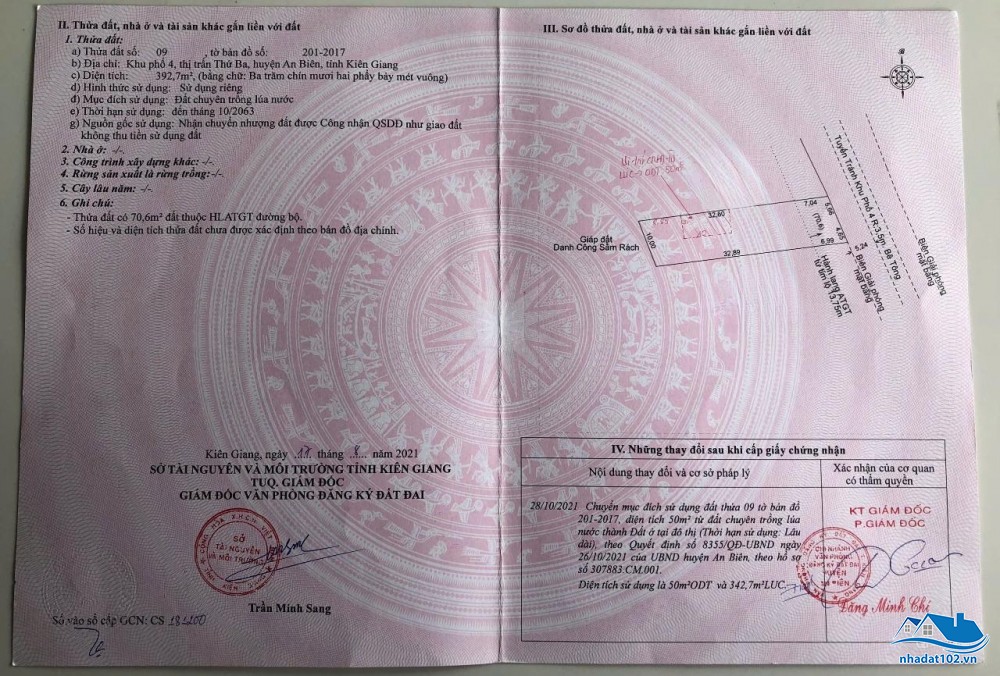 II. Thửa đất, nhà ở và tài sản khác gắn liền với đất
1. Thửa đất:
a) Thửa đất số: 09 , tờ bản đồ số: 201-2017
b) Địa chỉ: Khu phố 4, thị trấn Thứ Ba, huyện An Biên, tỉnh Kiên Giang
c) Diện tích: 392,7m², (bằng chữ: Ba trăm chín mươi hai phẩy bảy mét vuông)
d) Hình thức sử dụng: Sử dụng riêng
đ) Mục đích sử dụng: Đất chuyên trồng lúa nước
e) Thời hạn sử dụng: đến tháng 10/2063
g) Nguồn gốc sử dụng: Nhận chuyển nhượng đất được Công nhận QSDĐ như giao đất
không thu tiền sử dụng đất
2. Nhà ở: -/-.
3. Công trình xây dựng khác: -/-.
4. Rừng sản xuất là rừng trồng:-/-.
5. Cây lâu năm: -/-.
6. Ghi chú:
- Thửa đất có 70,6m² đất thuộc HLATGT đường bộ.
- Số hiệu và diện tích thửa đất chưa được xác định theo bản đồ địa chính.
Kiên Giang, ngày 17 tháng 8 năm 2021
SỞ TÀI NGUYÊN VÀ MÔI TRƯỜNG TỈNH KIÊN GIANG
TUQ. GIÁM ĐỐC
GIÁM ĐỐC VĂN PHÒNG ĐĂNG KÝ ĐẤT ĐAI
SỞ
TÀI NGUYÊN
VÀ MÔI TRƯỜNG
Trần Minh Sang
Số vào sổ cấp GCN: CS
III. Sơ đồ thửa đất, nhà ở và tài sản khác gắn liền với đất
Giáp đất
Danh Công Sầm Rách
10,00
32,60
7,04
32,89
6,99
(70,6)
5,66
4,65
5,24
Tuyến Tránh Khu Phố 4 R:3,5m. Bê Tông
Biên Giải phóng
mặt bằng
Biên Giải phóng
mặt bằng
Hành lang ATGT
từ tim 13.75m
IV. Những thay đổi sau khi cấp giấy chứng nhận
Nội dung thay đổi và cơ sở pháp lý
Xác nhận của cơ quan
có thẩm quyền
28/10/2021 Chuyển mục đích sử dụng đất thửa 09 tờ bản đồ
201-2017, diện tích 50m² từ đất chuyên trồng lúa
nước thành Đất ở tại đô thị (Thời hạn sử dụng: Lâu
dài), theo Quyết định số 8355/QĐ-UBND ngày
26/10/2021 của UBND huyện An Biên, theo hồ sơ
số 307883.CM.001.
Diện tích sử dụng là 50m²ODT và 342,7m²LUC.
KT GIÁM ĐỐC
P.GIÁM ĐỐC
CHI NHÁNH
VĂN PHÒNG
ĐĂNG KÝ ĐẤT ĐAI
HUYỆN
AN BIÊN
Đặng Minh Chí
nhadat102.vn